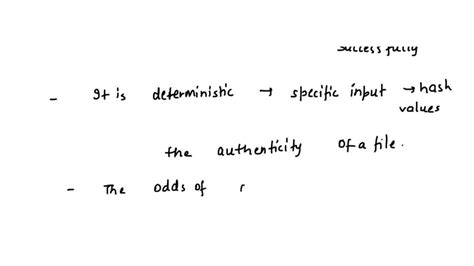 successfully
- It is deterministic → specific input → hash
values
the authenticity of a file.
- The odds of